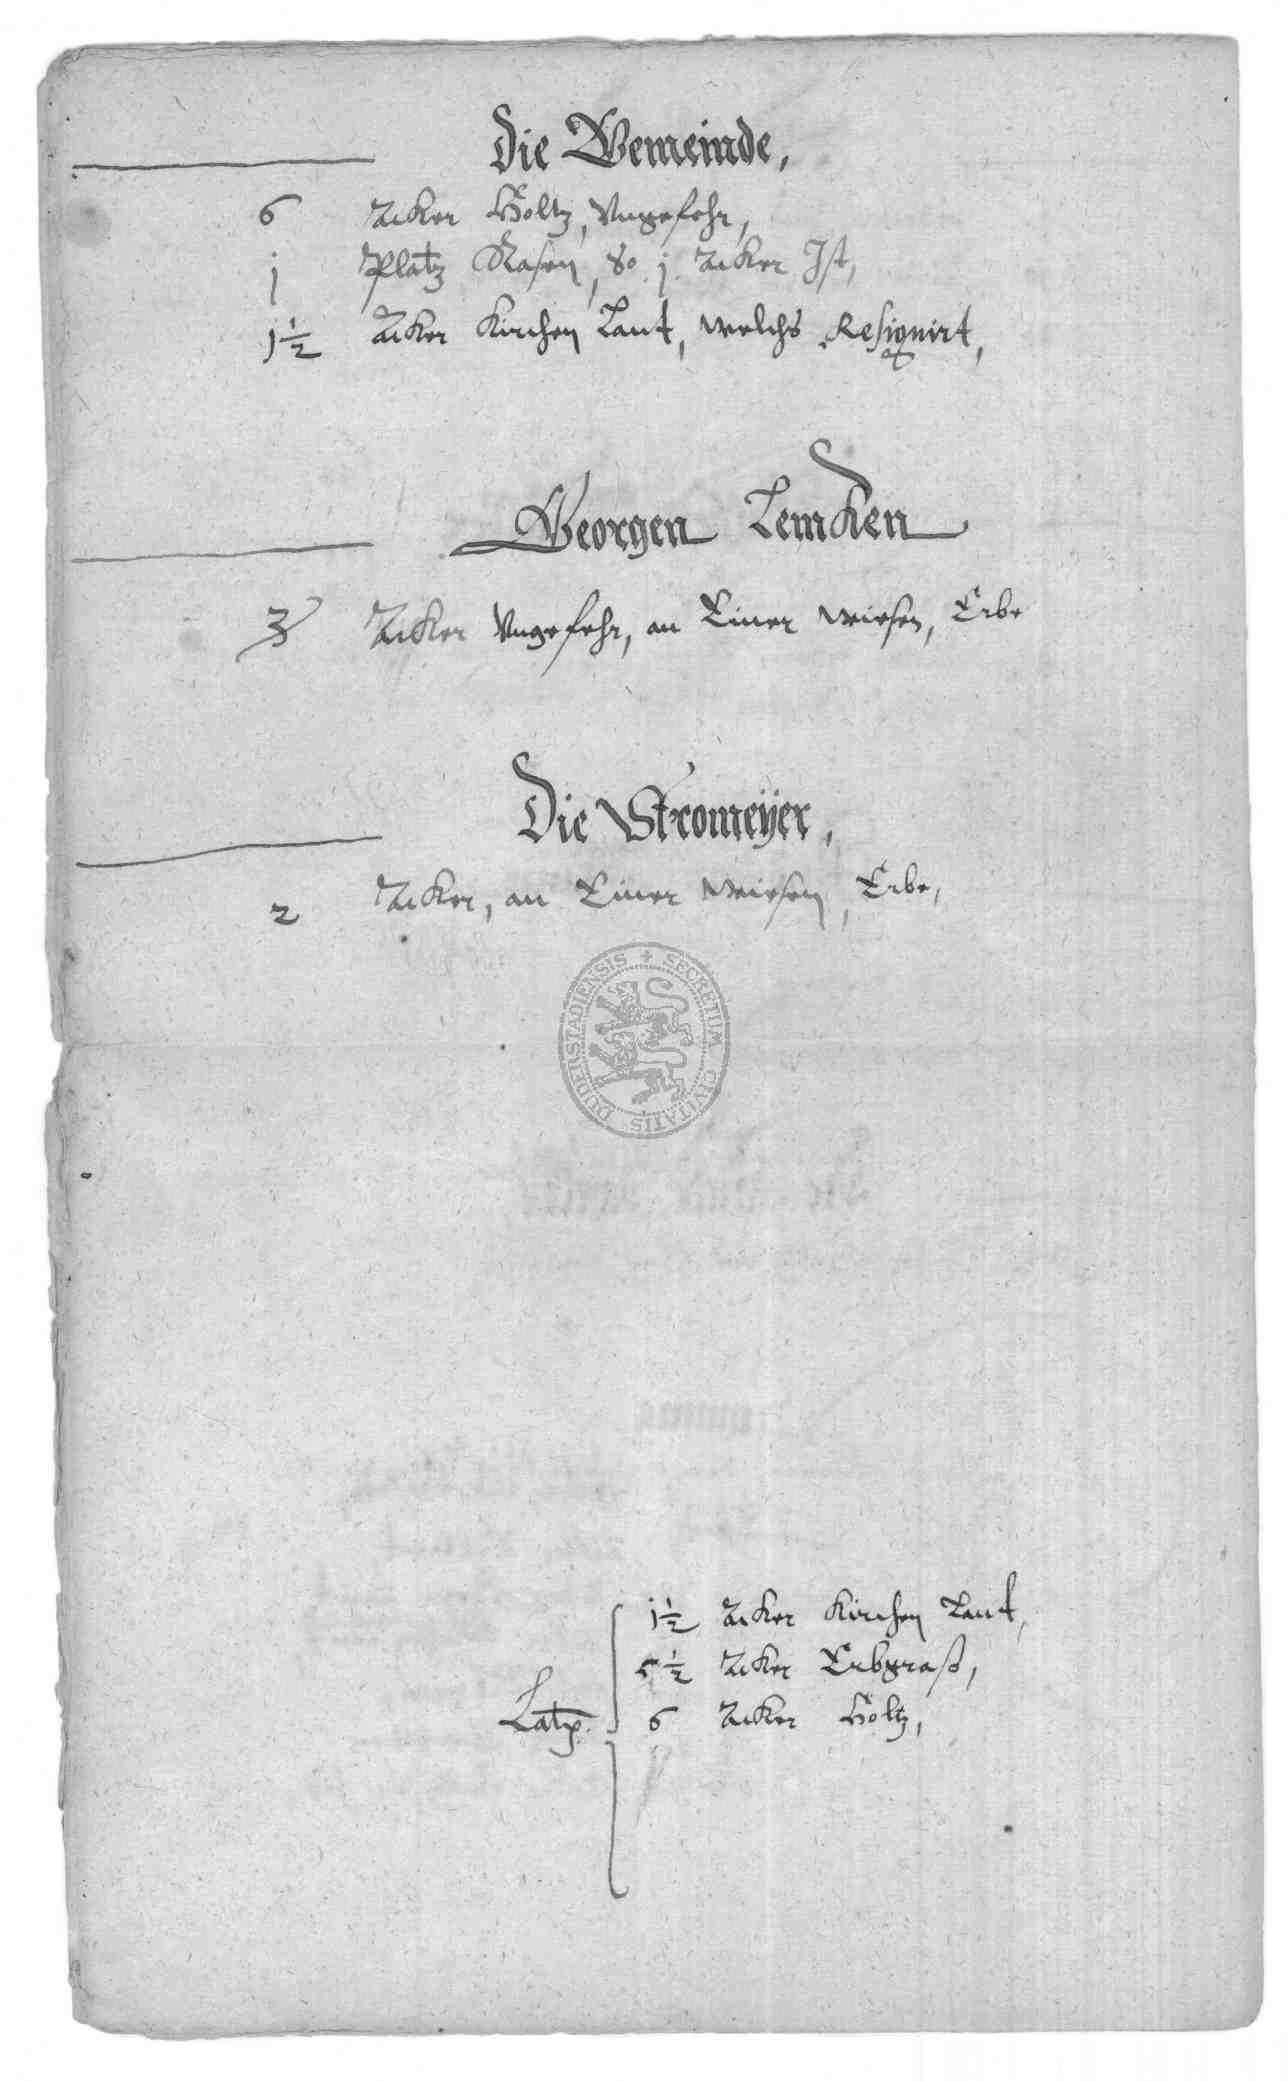 Die Gemeinde,
6 Acker Holtz, Vngefehr,
j Platz Rasen, so j Acker Ist,
j½ Acker Kirchen Lant, welchs Resignirt,
Georgen Lemken
3 Acker Vngefehr, an Einer wiesen, Erbe
Die Stromeÿer,
2 Acker, an Einer Wiesen, Erbe,
SECRETUM CIVITATIS DUDERSTADIENSIS
j½ Acker Kirchen Lant,
5½ Acker Erbgraß,
Latus 6 Acker Holtz,